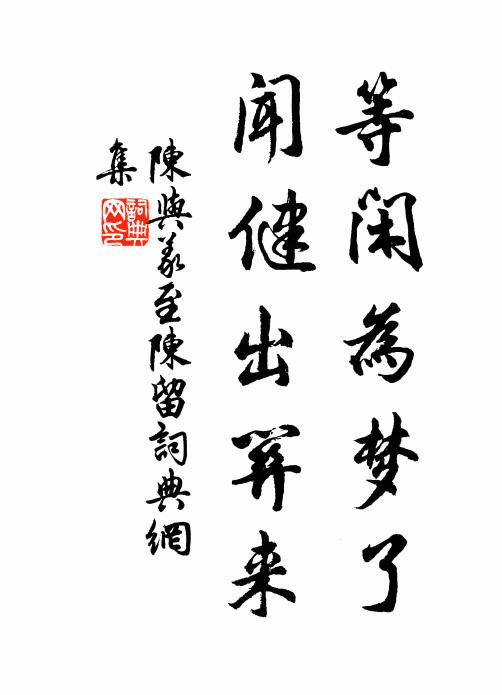 等闲為梦了
闻健出關来
陳與義至陳留詞典網
集
詞典网印